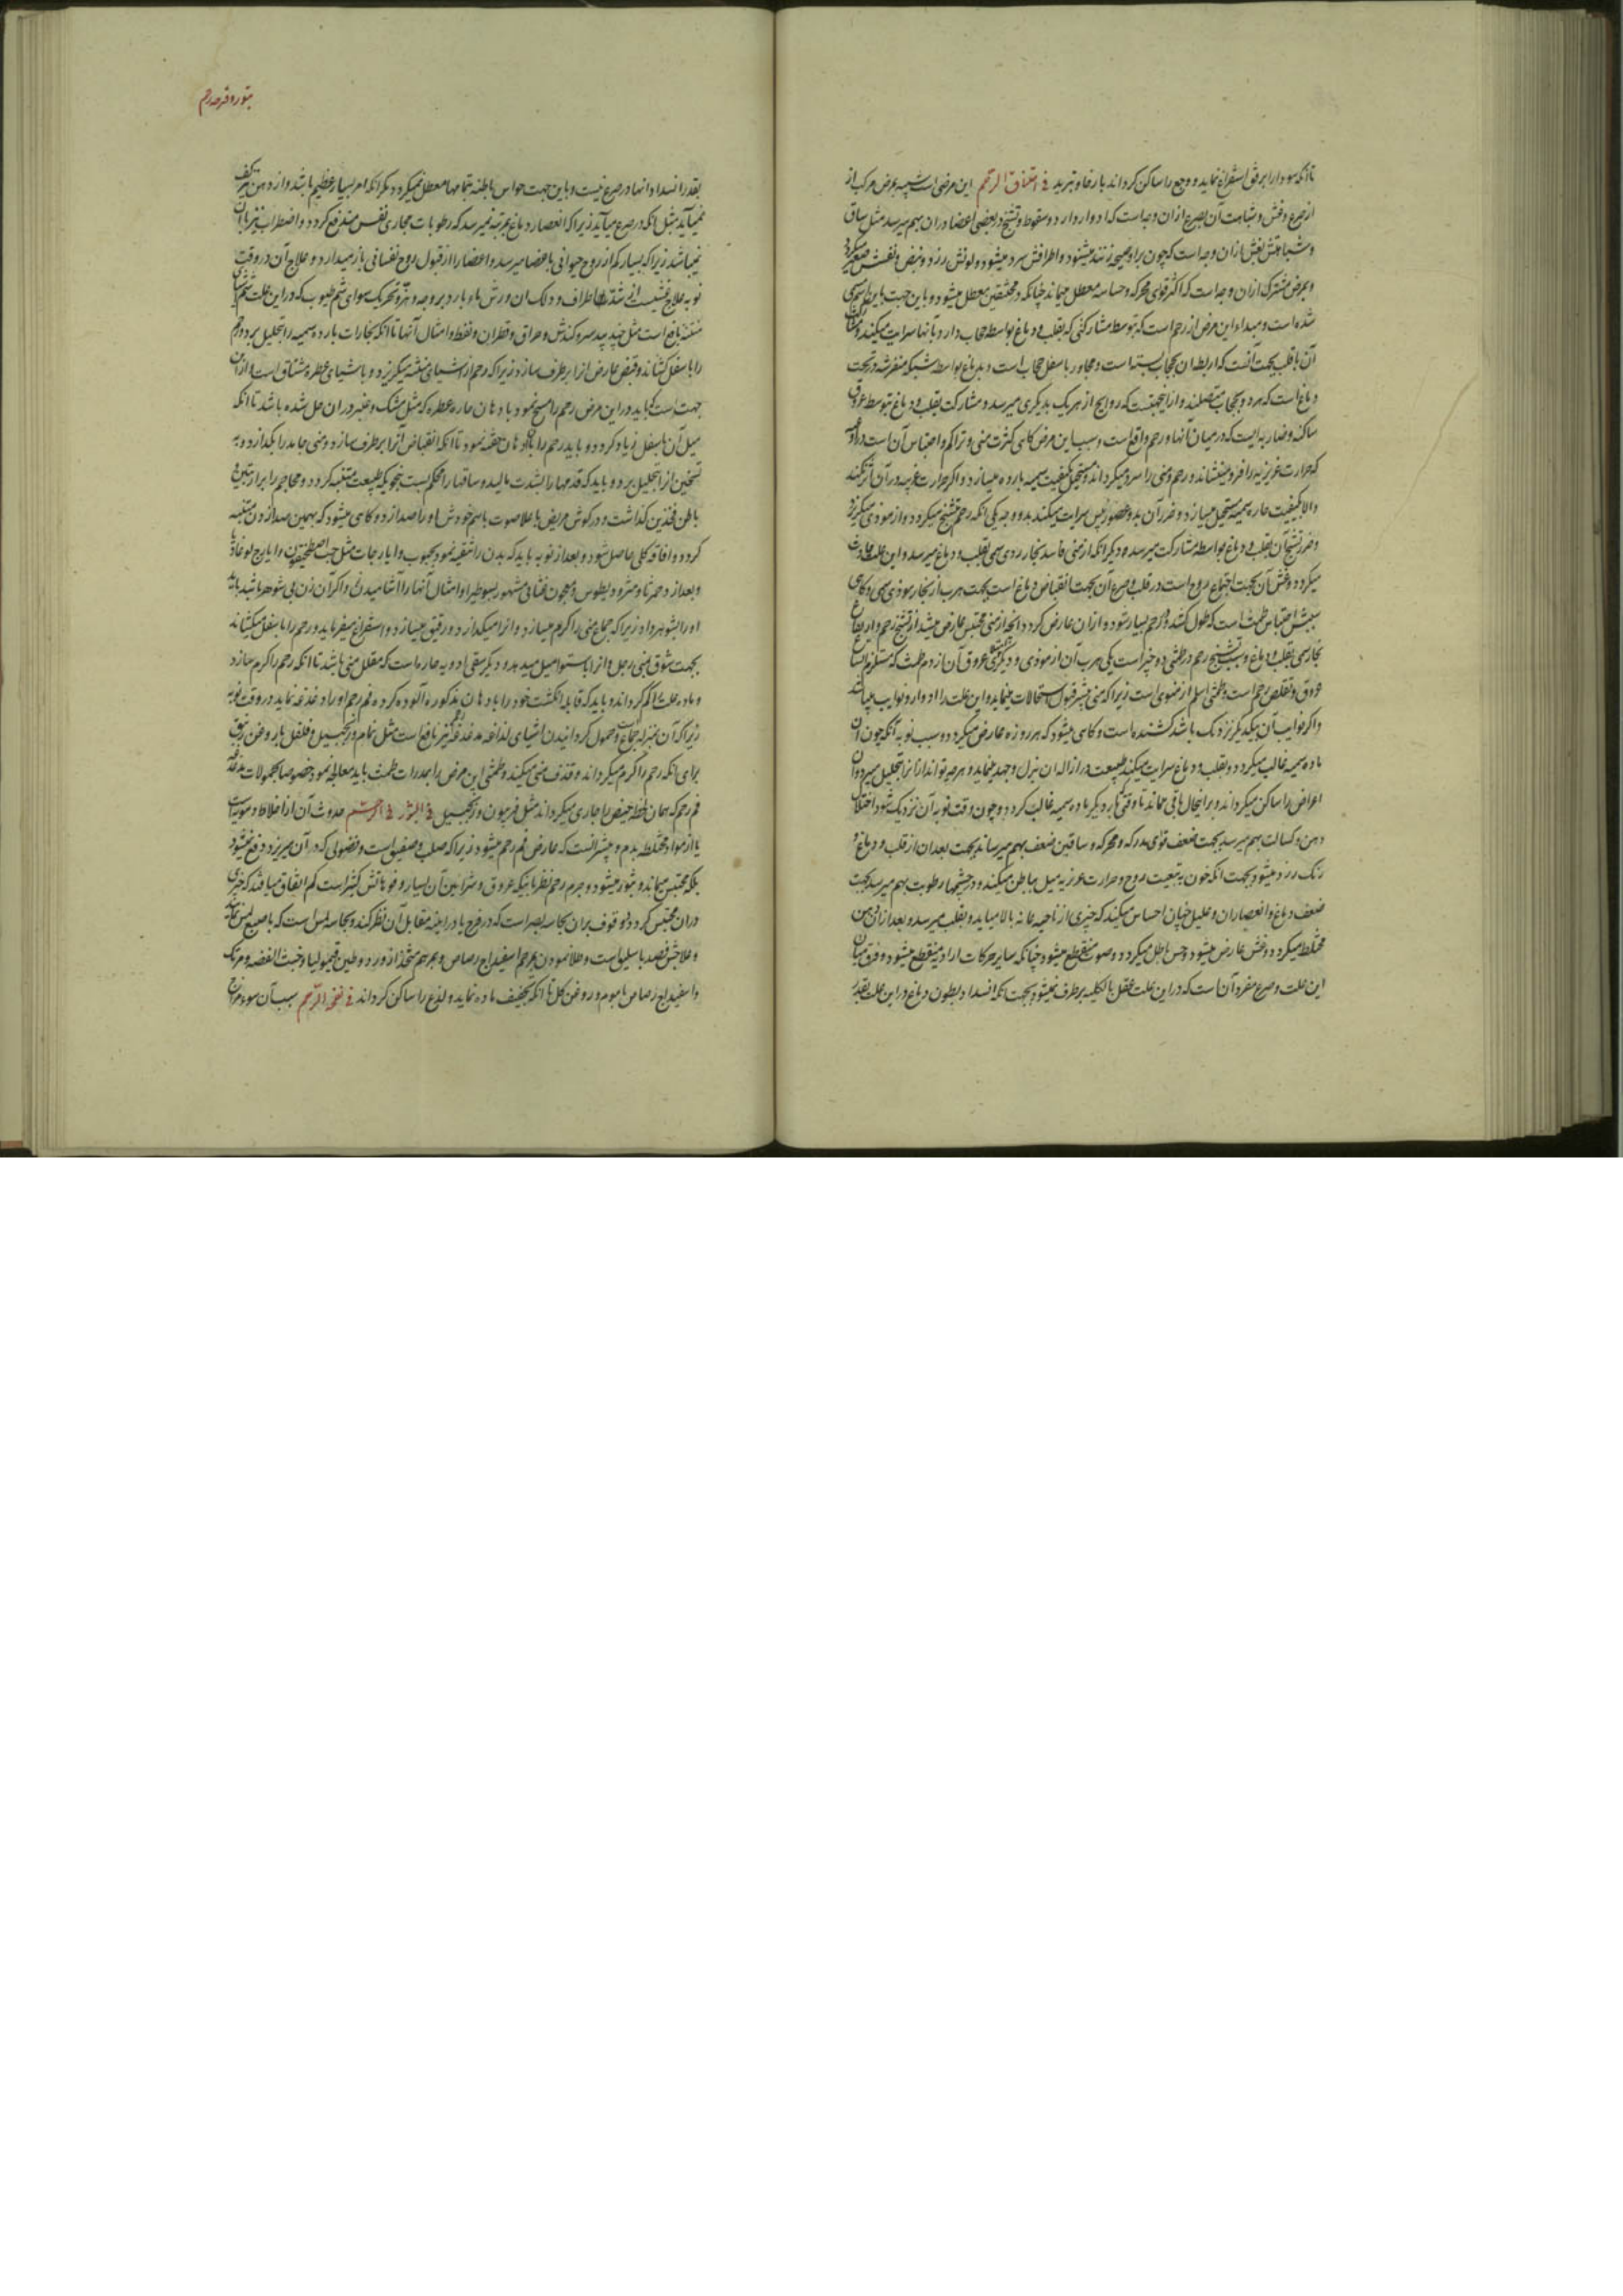 تا آنکه سودا را برفق استفراغ نماید و وجع را ساکن گرداند بارفا و تبرید فی اختناق الرحم این مرضی است شبیه بمرض مرکب از
صرع و غشی و مشابهت آن بصرع از آن وجه است که ادوار دارد و سقوط و تشنج در بعضی اعضا در آن بهم میرسد مثل ساق
و مشابهتش بغشی از آن وجه است که چون بر او صیحه زنند میشنود و اطرافش سرد میشود و لونش زرد و نبض و نفسش صغیر میگردد
و بمرض مشترک از آن وجه است که اکثر قوای محرکه و حساسه معطل میماند چنانکه در مختنقین معطل میشود و باین جهت باین اسم مسمی
شده است و مبداء این مرض از رحم است که بتوسط مشارکتی که بقلب و دماغ بواسطه حجاب دارد بآنها سرایت میکند و مشارکت
آن با قلب بجهت آنست که اربطه آن بحجاب بسته است و مجاور با سفل حجاب است و بدماغ بواسطه شبکه مفرشه در تحت
دماغ است که هر دو بحجاب متصلند و از اینجهتست که روایح از هر یک بدیگری میرسد و مشارکت بقلب و دماغ بتوسط عروق
ساکنه و ضاربه ایست که در میان آنها و رحم واقع است و سبب این مرض گاهی کثرت منی و تراکم و احتباس آن است در اوعیه
که حرارت غریزیه را فرو مینشاند و رحم و منی را سرد میگرداند و مستحیل بکیفیت سمیه بارده میسازد و اگر حرارت غریبه در آن اثر کند
والا بکیفیت حاره سمیه مستحیل میسازد و ضرر آن بدو عضو رئیس سرایت میکند بدو وجه یکی آنکه رحم متشنج میگردد و از موذی میگریزد
و ضرر تشنج آن بقلب و دماغ بواسطه مشارکت میرسد و دیگر آنکه از منی فاسد بخار ردی سمی بقلب و دماغ میرسد و این علت حادث
میگردد و غشی آن بجهت اجتماع روح است در قلب و صرع آن بجهت انقباض دماغ است بجهت هرب از بخار موذی سمی و گاهی
سببش احتباس طمث است که طول کشد و در رحم بسیار شود و از آن عارض گردد آنچه از منی محتبس عارض میشد از تشنج رحم و ارتفاع
بخار سمی بقلب و دماغ و سبب تشنج رحم در طمثی دو چیز است یکی هرب آن از موذی و دیگر تمدد عروق آن از دم طمث که مستلزم اتساع
عروق و تقلص رحم است و طمثی اسلم از منوی است زیرا که منی بیشتر قبول استحالات مینماید و این علت را ادوار و نوایب میباشد
و اگر نوایب آن بیکدیگر نزدیک باشد کشنده است و گاهی میشود که هر روزه عارض میگردد و سبب نوبه آنکه چون آن
ماده سمیه غالب میگردد و بقلب و دماغ سرایت میکند طبیعت در ازاله آن بذل و جهد مینماید و هر چه تواند از آنرا تحلیل میبرد و آن
اعراض را ساکن میگرداند و بر این حال باقی میماند تا وقتی که بار دیگر ماده سمیه غالب گردد و چون وقت نوبه آن نزدیک شود اختلال
ذهن و کسالت بهم میرسد بجهت ضعف قوای مدرکه و محرکه و ساقین ضعف بهم میرساند بجهت بعد آن از قلب و دماغ و
رنگ زرد میشود بجهت آنکه خون به تبعیت روح و حرارت غریزیه میل بباطن میکند و در چشمها رطوبت بهم میرسد بجهت
ضعف دماغ و انعصار آن و علیل چنان احساس میکند که چیزی از ناحیه عانه بالا میآید و بقلب میرسد و بعد از آن ذهن
مختلط میگردد و غشی عارض میشود و حس باطل میگردد و صوت منقطع میشود چنانکه سایر حرکات ارادیه منقطع میشود و فرق میان
این علت و صرع مفرد آن است که در این علت عقل بالکلیه برطرف نمیشود بجهت آنکه انسداد بطون دماغ در این علت بقدر
بثور و قرحه رحم
بقدر انسداد آنها در صرع نیست و باین جهت حواس باطنه بتمامها معطل نمیگردد مگر آنکه امر بسیار عظیم باشد و از دهن مریض کف
نمیآید مثل آنکه در صرع میآید زیرا که انعصار دماغ بمرتبه نمیرسد که رطوبات بمجاری نفس مندفع گردد و اضطراب نیز با آن
نمیباشد زیرا که بسیار کم از روح حیوانی باعضا میرسد و اعضا را از قبول روح نفسانی باز میدارد و علاج آن در وقت
نوبه علاج غشیست از شد اطراف و دلک آن و رش ماء بارد بر وجه و هز و تحریک سوای شم طیوب که در این علت شم اشیای
منتنه نافع است مثل جندبیدستر و کندش و حراق و قطران و نفط و امثال آنها تا آنکه بخارات بارده سمیه را تحلیل برد و رحم
را باسفل کشاند و قبض عارض آنرا برطرف سازد زیرا که رحم از اشیای منتنه میگریزد و باشیای عطره مشتاق است و از این
جهت است که باید در این مرض رحم را مسح نمود بادهان حاره عطره که مثل مشک و عنبر در آن حل شده باشد تا آنکه
میل آن باسفل زیاد گردد و باید رحم را بآن ادهان حقنه نمود تا آنکه انقباض آنرا برطرف سازد و منی جامد را بگدازد و به
تسخین آنرا تحلیل برد و باید که قدمها را بشدت مالید و ساقها را محکم بست بنحویکه طبیعت متنبه گردد و محاجم را بر اربیتین و
باطن فخذین گذاشت و در گوش مریض باعلا صوت باسم خودش او را صدا زد و گاهی میشود که بهمین صدا زدن متنبه
گردد و افاقه کلی حاصل شود و بعد از نوبه باید که بدن را تنقیه نمود بحبوب و ایارجات مثل حب اصطمخیقون و ایارج لوغاذیا
و بعد از دحمرثا و مثرودیطوس و معجون غیاثی مشهور بسوطیرا و امثال آنها را آشامیدن و اگر آن زن بی شوهر باشد باید
او را بشوهر داد زیرا که جماع منی را گرم میسازد و آنرا میگدازد و رقیق میسازد و استفراغ میفرماید و رحم را باسفل میکشاند
بجهت شوق بمنی رجل و آنرا باستوا میل میدهد و دیگر سقی ادویه حاره است که مقلل منی باشد تا آنکه رحم را گرم سازد
و ماده علت را کم گرداند و باید که قابله انگشت خود را بادهان مذکوره آلوده کرده فم رحم او را دغدغه نماید در وقت نوبه
زیرا که آن بمنزله جماع است و حمول گردانیدن اشیای لذاعه مدغدغه نیز نافع است مثل نمام و زنجبیل و فلفل با روغن زنبق
برای آنکه رحم را گرم میگرداند و قذف منی میکند و طمثی این مرض را بمدرات طمث باید معالجه نمود خصوصا بحمولات مدغدغه
فم رحم که همان لحظه حیض را جاری میگرداند مثل فربیون و زنجبیل فی البثور فی الرحم حدوث آن از اخلاط دمویه است
یا از مواد مختلطه بدم و بیشتر آنست که عارض فم رحم میشود زیرا که صلب و صفیق است و فضولی که در آن میریزد دفع نمیشود
بلکه محتبس میماند و بثور میشود و جرم رحم نظر باینکه عروق و شرائین آن بسیار و فوهاتش کثیر است کم اتفاق میافتد که چیزی
در آن محتبس گردد و وقوف بر آن بحاسه بصر است که در فرج یا در آینه مقابل آن نظر کنند و بحاسه لمس است که باصبع لمس نمایند
و علاجش فصد باسلیق است و طلا نمودن بمرهم اسفیداج رصاص و بمرهم متخذ از ورد و طین قیمولیا و خبث الفضه و مرتک
و اسفیداج رصاص با موم و روغن گل تا آنکه تجفیف ماده نماید و لذع را ساکن گرداند فی نفخة الرحم سبب آن سوء مزاج